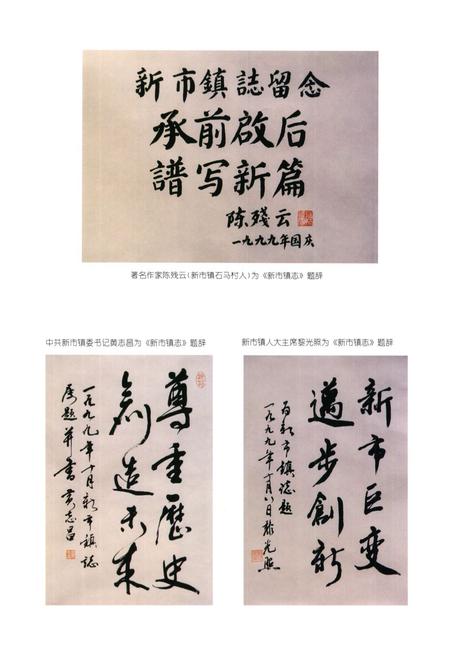 新市鎮誌留念
承前啟后
譜写新篇
陈残云
一九九九年国庆
著名作家陈残云(新市镇石马村人)为《新市镇志》题辞
中共新市镇委书记黄志昌为《新市镇志》题辞
尊重歷史
創造未来
一九九九年十月新市鎮誌
属题并书 黄志昌
新市镇人大主席黎光照为《新市镇志》题辞
新市巨变
邁步創新
为新市鎮誌題
一九九九年十月八日 黎光照